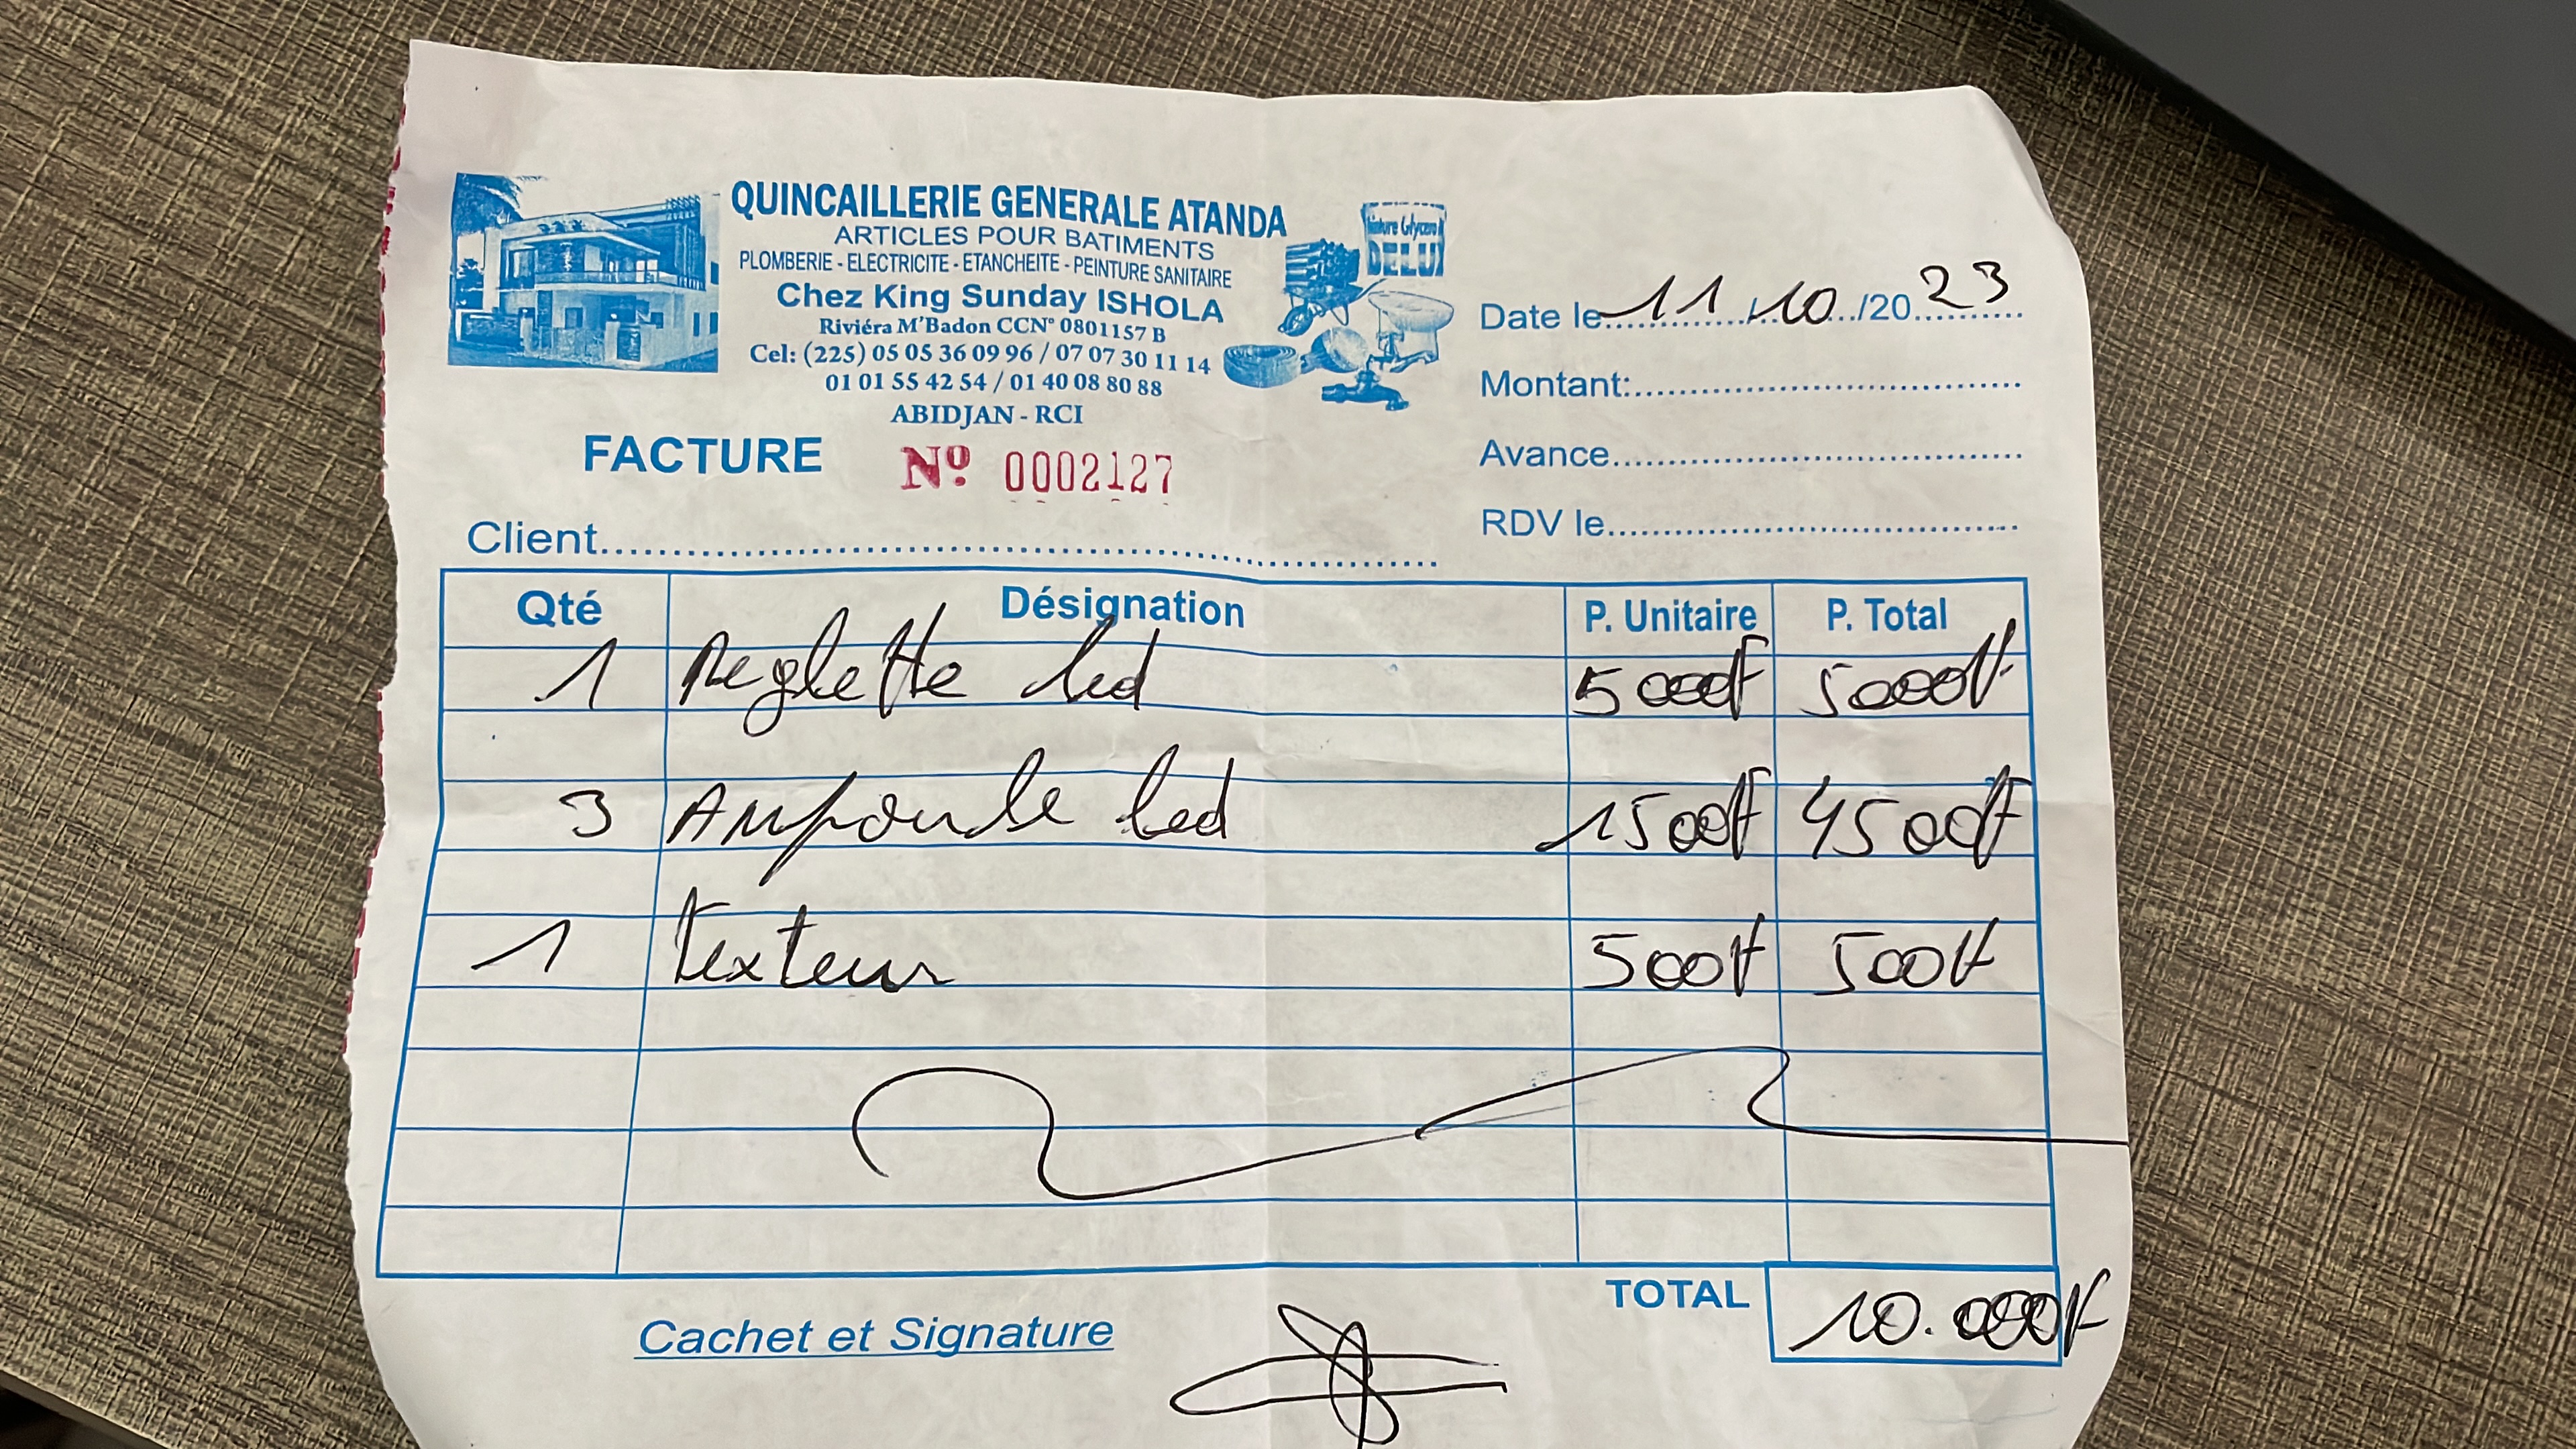 QUINCAILLERIE GENERALE ATANDA
ARTICLES POUR BATIMENTS
PLOMBERIE - ELECTRICITE - ETANCHEITE - PEINTURE SANITAIRE
Chez King Sunday ISHOLA
Riviéra M'Badon CCN° 0801157 B
Cel: (225) 05 05 36 09 96 / 07 07 30 11 14
01 01 55 42 54 / 01 40 08 80 88
ABIDJAN - RCI
DELUX
Date le 11/10/2023
Montant:
Avance
RDV le
FACTURE N° 0002127
Client
Qté Désignation P. Unitaire P. Total
1 Reglette led 5000f 5000f
3 Ampoule led 1500f 4500f
1 texteur 500f 500f
TOTAL 10.000f
Cachet et Signature